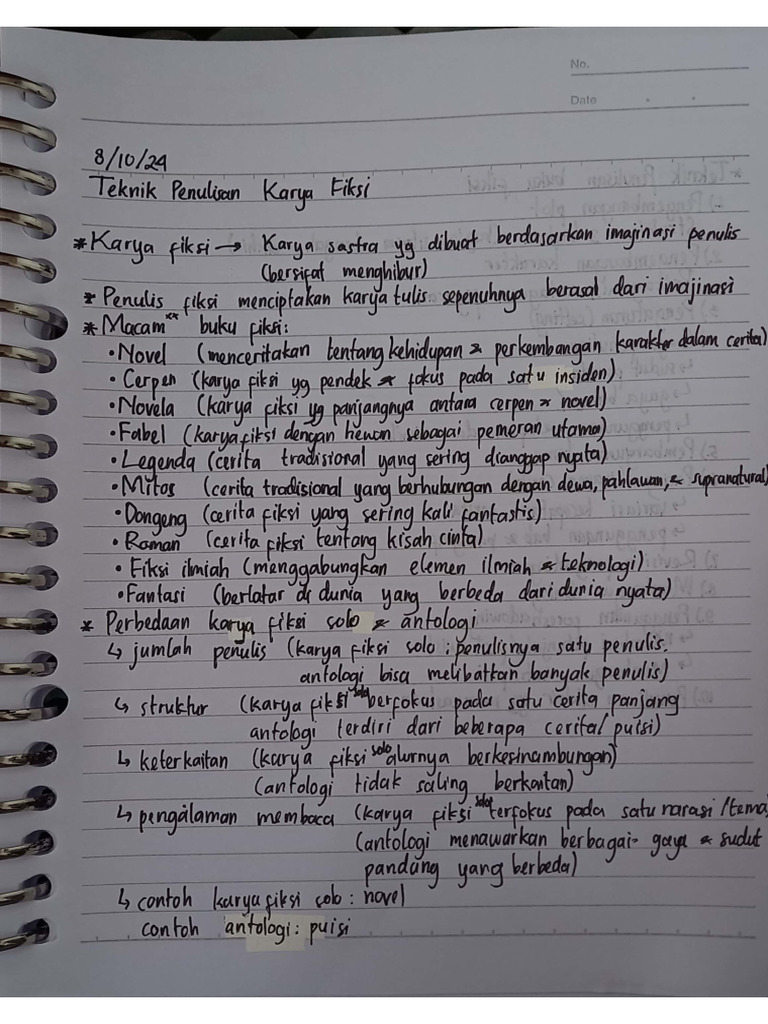 No.
Date
8/10/24
Teknik Penulisan Karya Fiksi
* Karya fiksi → Karya sastra yg dibuat berdasarkan imajinasi penulis
(bersifat menghibur)
* Penulis fiksi menciptakan karya tulis sepenuhnya berasal dari imajinasi
* Macam" buku fiksi:
• Novel (menceritakan tentang kehidupan & perkembangan karakter dalam cerita)
• Cerpen (karya fiksi yg pendek & fokus pada satu insiden)
• Novela (karya fiksi yg panjangnya antara cerpen & novel)
• Fabel (karya fiksi dengan hewan sebagai pemeran utama)
• Legenda (cerita tradisional yang sering dianggap nyata)
• Mitos (cerita tradisional yang berhubungan dengan dewa, pahlawan, & supranatural)
• Dongeng (cerita fiksi yang sering kali fantastis)
• Roman (cerita fiksi tentang kisah cinta)
• Fiksi ilmiah (menggabungkan elemen ilmiah & teknologi)
• Fantasi (berlatar di dunia yang berbeda dari dunia nyata)
* Perbedaan karya fiksi solo & antologi
↳ jumlah penulis (karya fiksi solo : penulisnya satu penulis.
antologi bisa melibatkan banyak penulis)
↳ struktur (karya fiksi solo berfokus pada satu cerita panjang
antologi terdiri dari beberapa cerita/puisi)
↳ keterkaitan (karya fiksi solo alurnya berkesinambungan)
(antologi tidak saling berkaitan)
↳ pengalaman membaca (karya fiksi solo terfokus pada satu narasi/tema)
(antologi menawarkan berbagai gaya & sudut
pandang yang berbeda)
↳ contoh karya fiksi solo : novel
contoh antologi : puisi